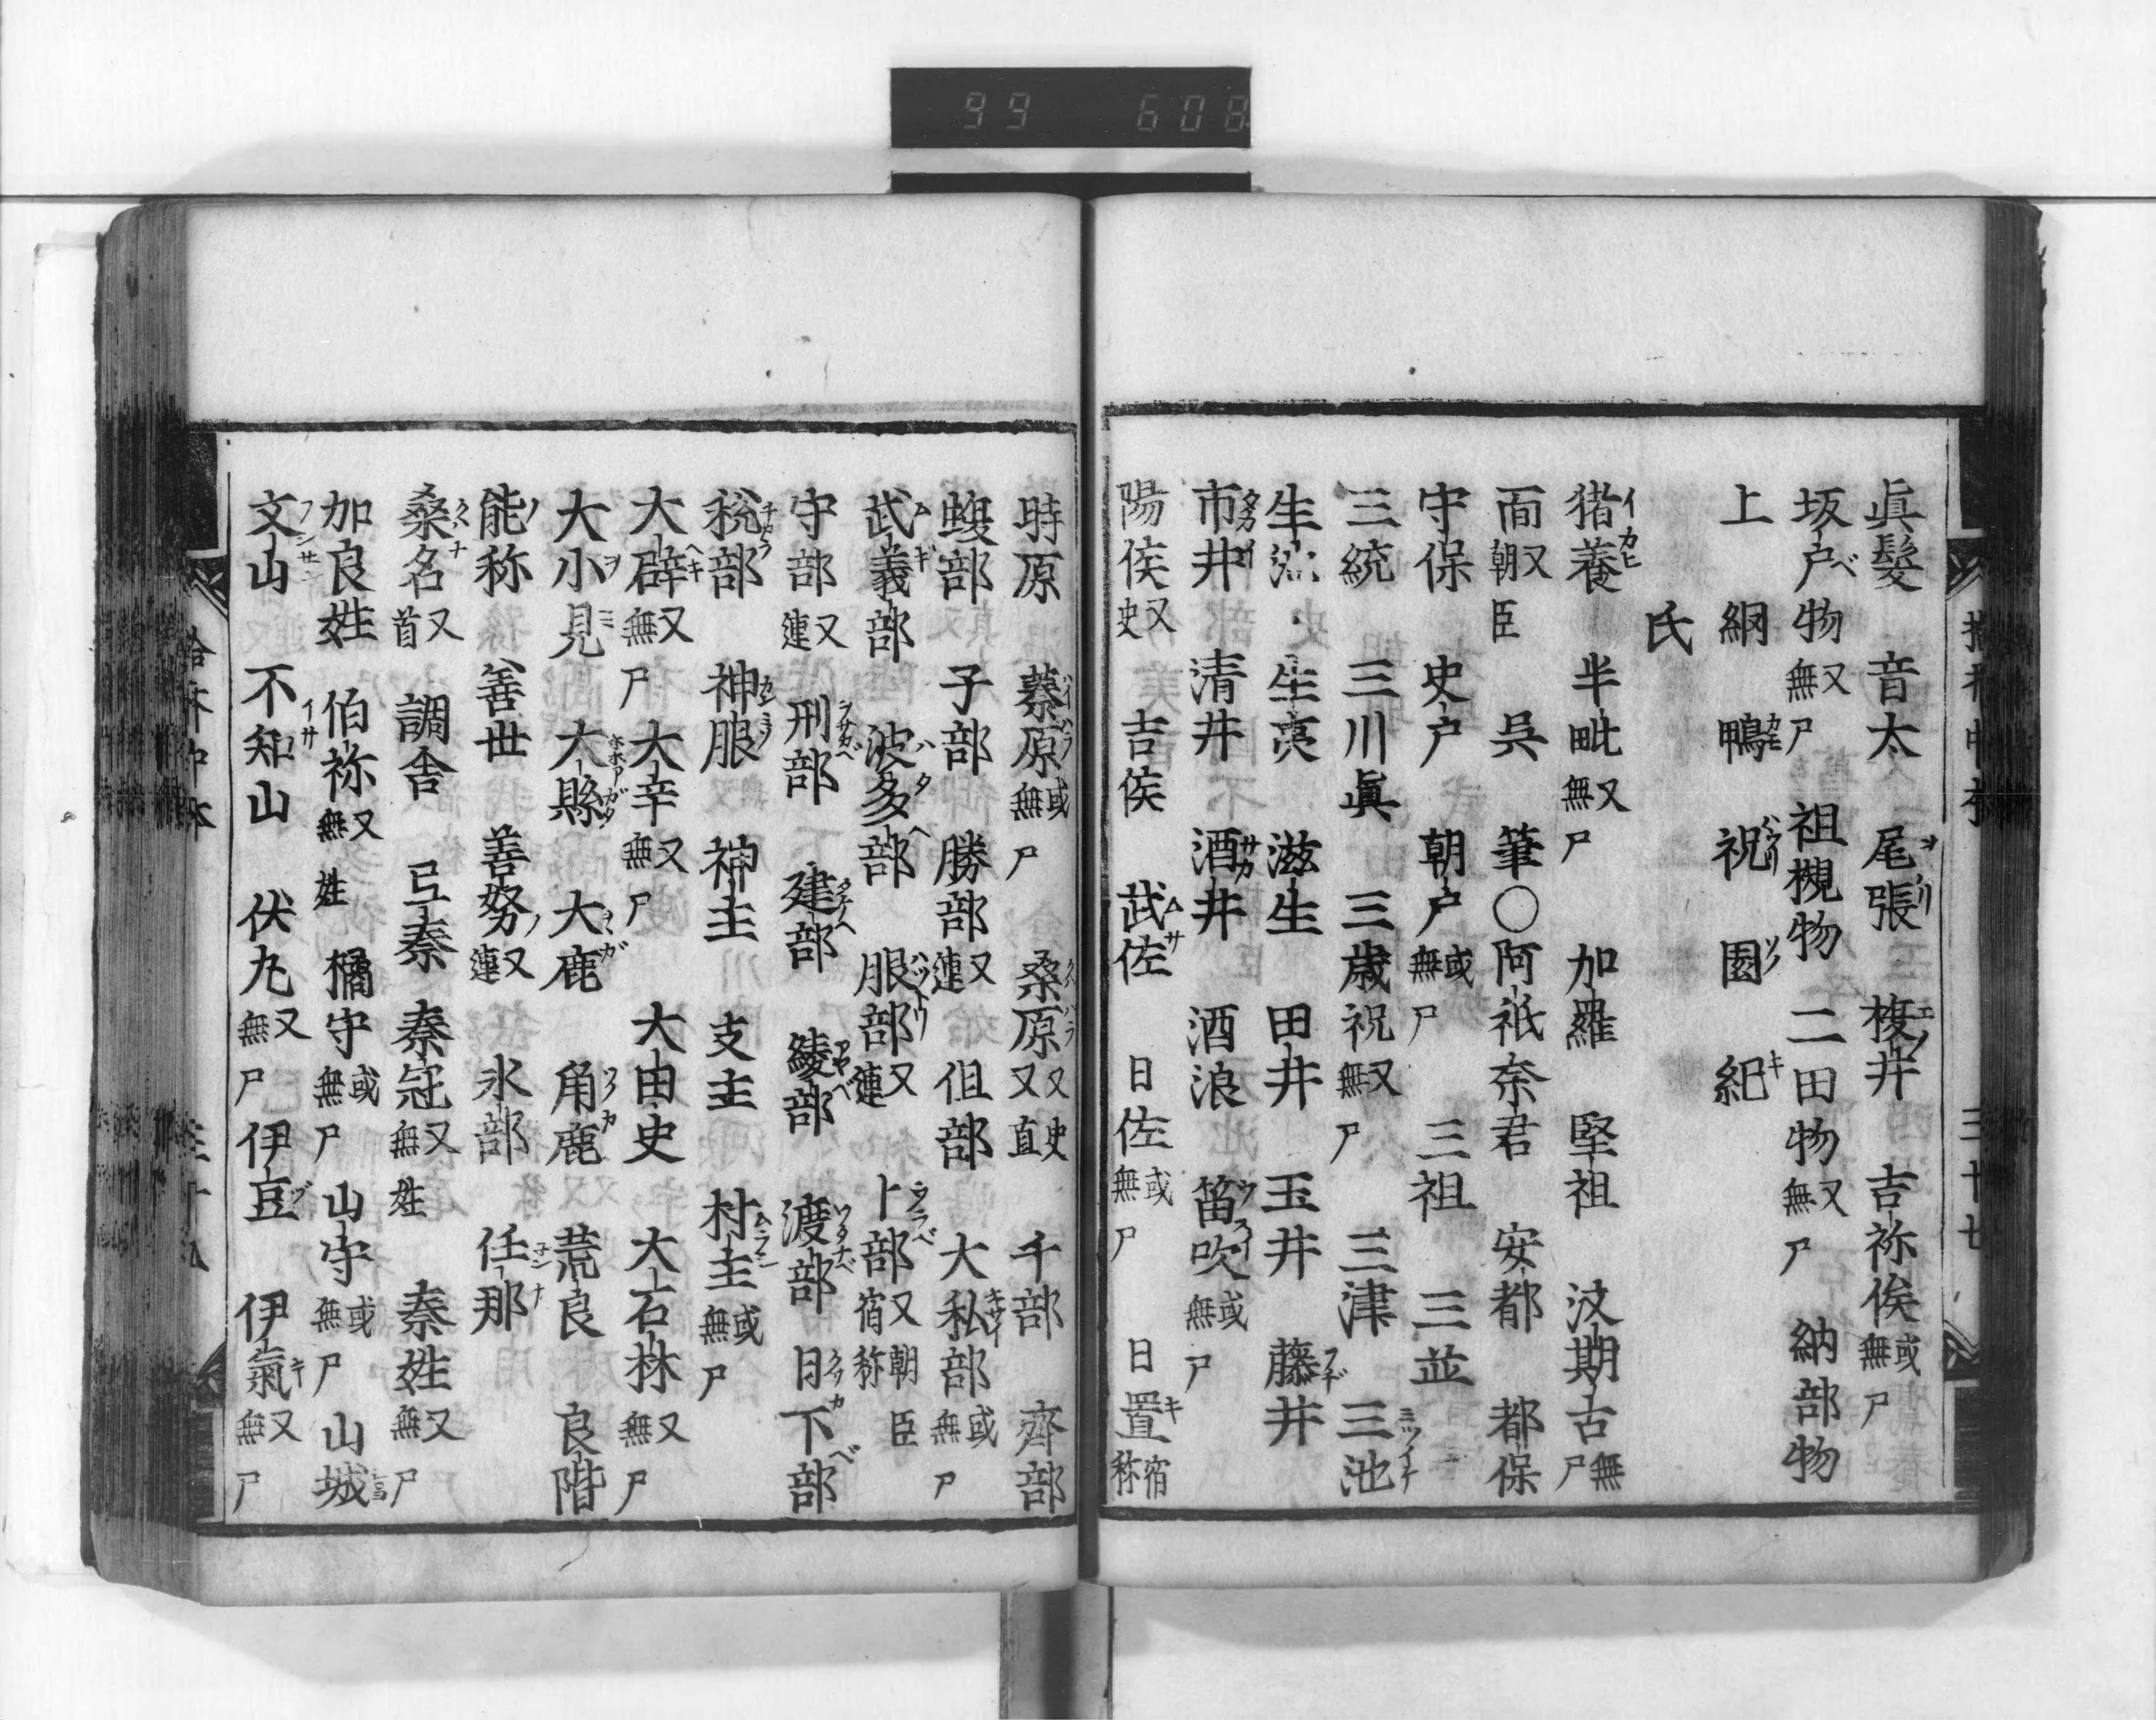 99 608
眞髮 音太 尾張 榎井 吉祢侯 或無尸
坂戸物 又無尸 祖槻物 二田物 又無尸 納部物
上 綱 鴨 祝 園 紀
氏
猪養 半毗 又無尸 加羅 堅祖 汶期古 無尸
面 又朝臣 呉 筆○阿祇奈君 安都 都保
守保 史戸 朝戸 或無尸 三祖 三並
三統 三川眞 三歳祝 又無尸 三津 三池
生 生夷 滋生 田井 玉井 藤井
市井 清井 酒井 酒浪 笛吹 或無尸
陽侯 又史 吉侯 武佐 日佐 或無尸 日置 宿祢
時原 蓁原 或無尸 桑原 又史又直 千部 齊部
蝮部 子部 勝部 又連 伹部 大私部 或無尸
武義部 波多部 服部 又連 卜部 又宿祢朝臣
守部 又連 刑部 建部 綾部 渡部 日下部
税部 神服 神主 支主 村主 或無尸
大辟 又無尸 大辛 又無尸 大由史 大石林 又無尸
大小見 大縣 大鹿 角鹿 荒良 良階
能称 善世 善努 又連 氷部 任那
桑名 又首 調舎 弖秦 秦冠 又無姓 秦姓 又無尸
加良姓 伯祢 又無姓 橘守 或無尸 山守 或無尸 山城
文山 不知山 伏丸 又無尸 伊豆 伊氣 又無尸